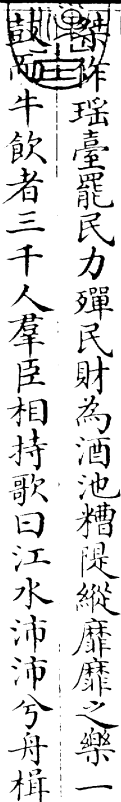 桀作瑶臺罷民力殫民財為酒池糟隄縱靡靡之樂一
鼓而牛飲者三千人羣臣相持歌曰江水沛沛兮舟楫